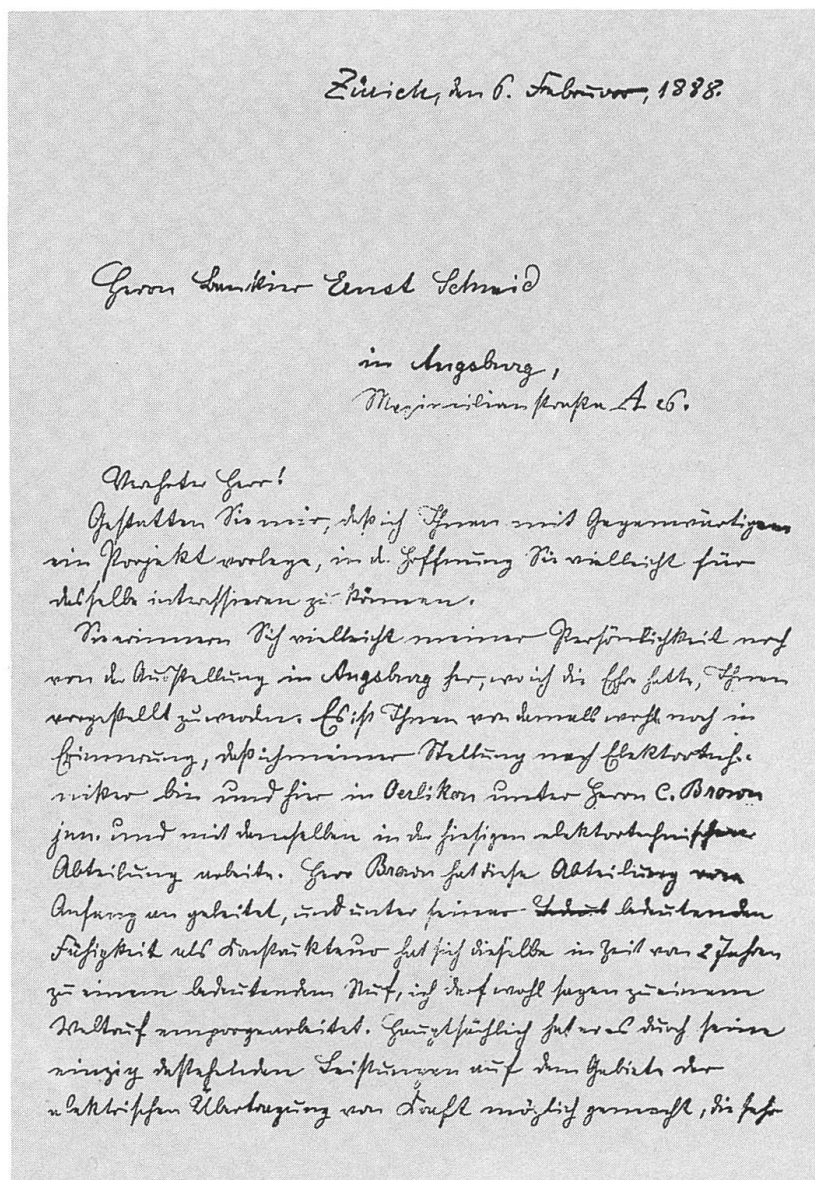 Zürich, den 6. Februar, 1888.
Herrn Bankier Ernst Schmid
in Augsburg,
Maximilianstraße A 26.
Verehrter Herr!
Gestatten Sie mir, daß ich Ihnen mit Gegenwärtigem
ein Projekt vorlege, in d. Hoffnung Sie vielleicht für
dasselbe interessieren zu können.
Sie erinnern Sich vielleicht meiner Persönlichkeit noch
von der Ausstellung in Augsburg her, wo ich die Ehre hatte, Ihnen
vorgestellt zu werden. Es ist Ihnen von damals wohl noch in
Erinnerung, daß ich meiner Stellung nach Elektrotech-
niker bin und hier in Oerlikon unter Herrn C. Brown
jun. und mit demselben in der hiesigen elektrotechnischen
Abteilung arbeite. Herr Brown hat diese Abteilung von
Anfang an geleitet, und unter seiner bedeutenden
Fähigkeit als Konstrukteur hat sich dieselbe in Zeit von 2 Jahren
zu einem bedeutendem Ruf, ich darf wohl sagen zu einem
Weltruf emporgearbeitet. Hauptsächlich hat er es durch seine
einzig dastehenden Leistungen auf dem Gebiete der
elektrischen Übertragung von Kraft möglich gemacht, die sehr